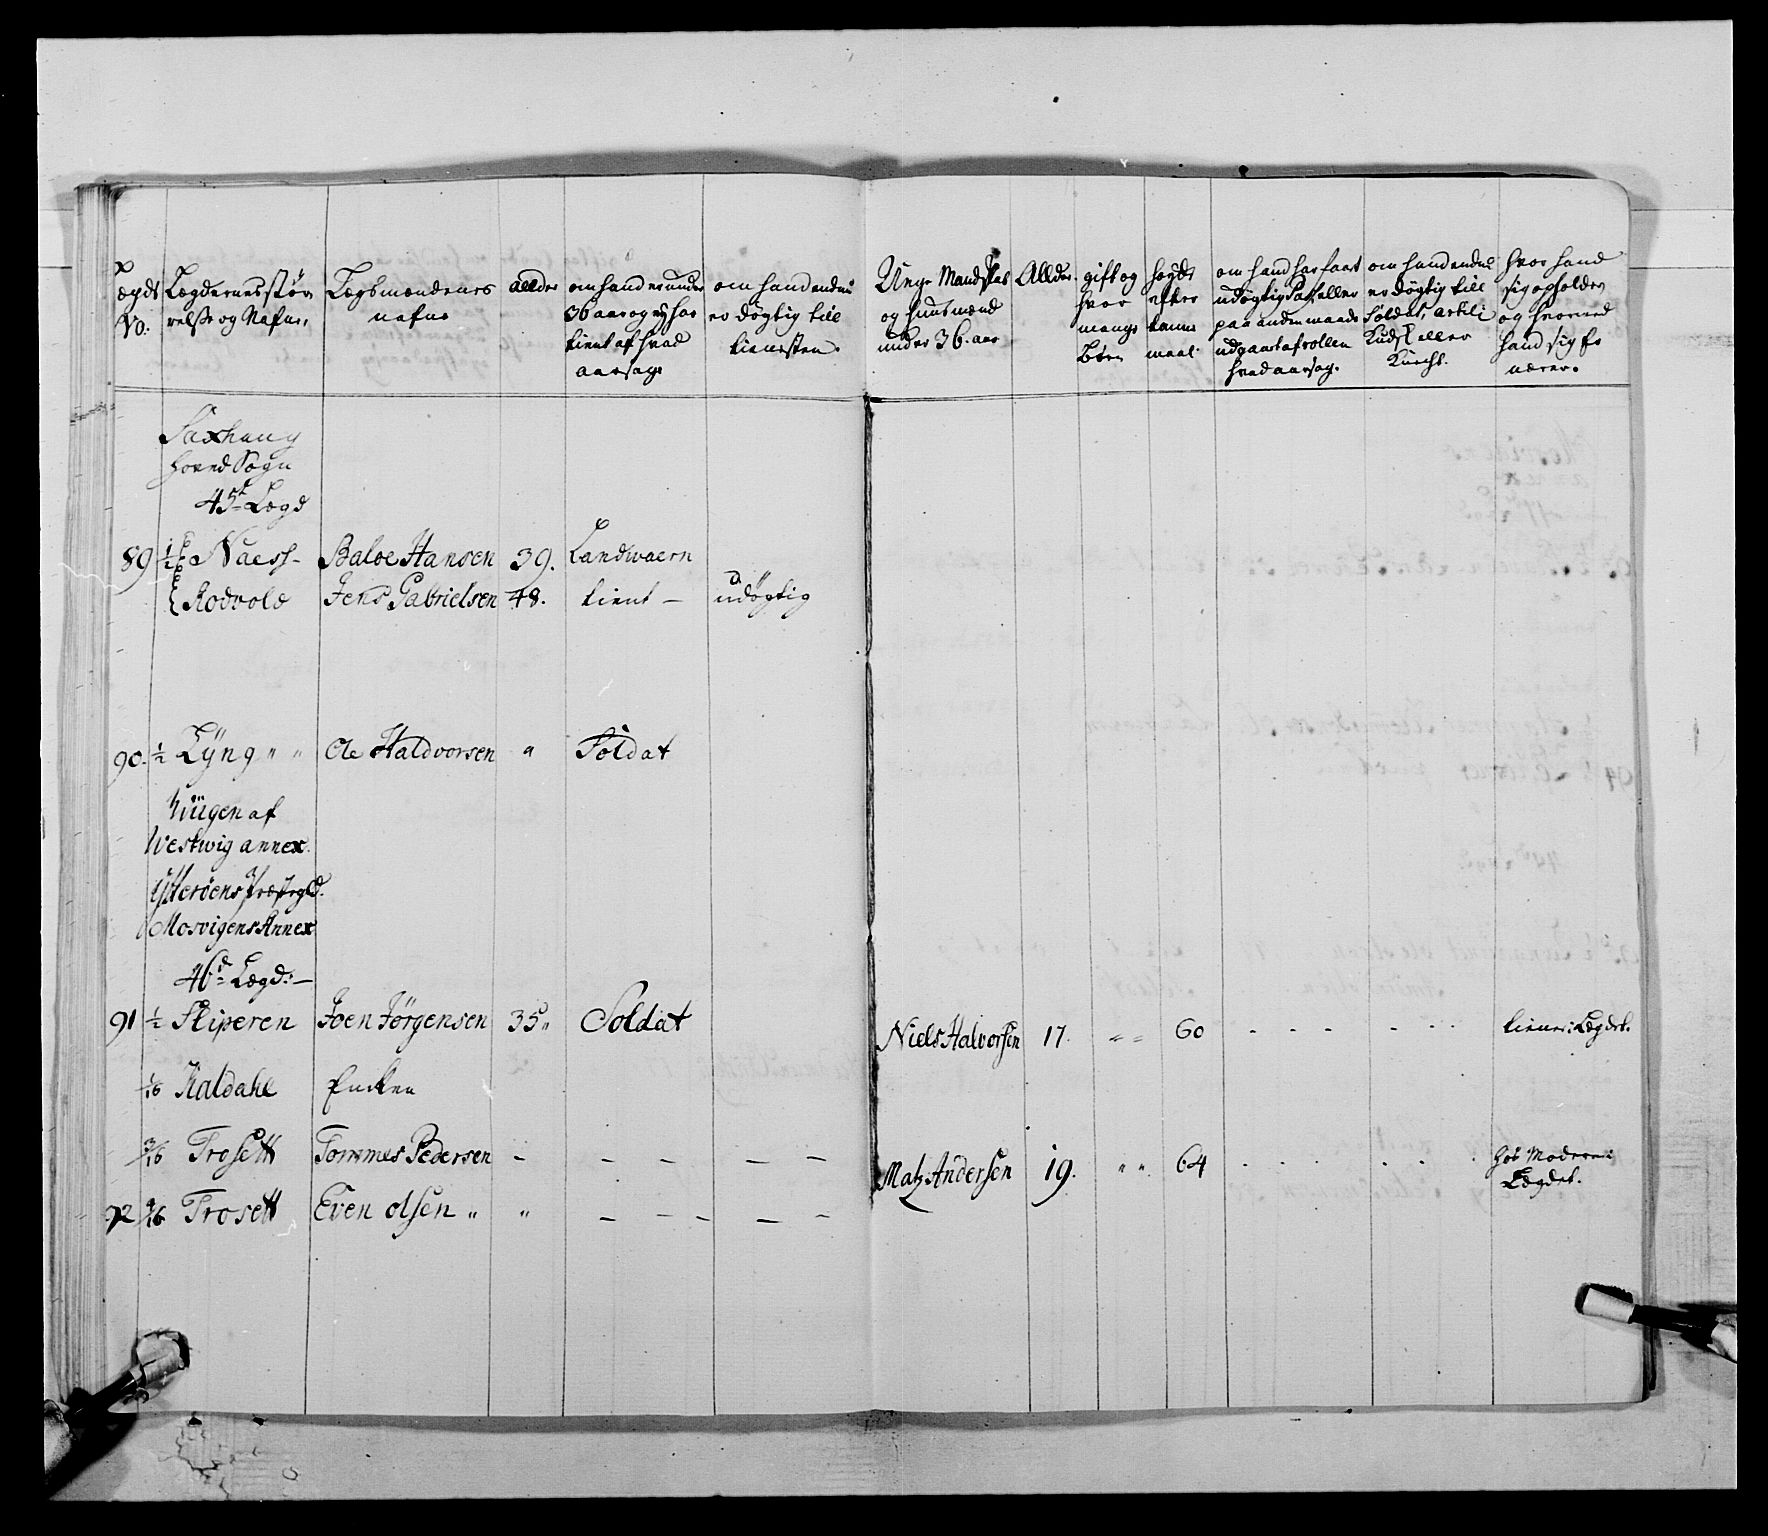 Lægds No:
Lægdernes stør-
relse og Nafne,
Lægsmændenes
nafne
allder
om hand er under
36 aar og ej har
tient af hvad
aarsage
om hand endnu
er døgtig till
tienesten.
Unge Mandskab
og huusmænd
under 36. aar
Allder.
gift og
hvor
mange
Børn
høyde
efter
lanne
maal.
om hand har faaet
udøgtig Pas eller
paa anden maade
udgaaet af rollen
hvad aarsag.
om hand endnu
er døgtig till
Soldat, artili
Kudsk eller
Knecht.
hvor hand
sig opholder
og hvormed
hand sig er
nærer.
Saxhaug
hoved Sogn
45de Lægd
89 1/2 Naess- Baloe Hansen 39. Landwaern
Rodvold Jens Gabrielsen 48. tient - udøgtig
90. 1/2 Lÿng " " Ole Haldvorsen " Soldat
Wiigen af
Westwig annex.
Ÿtterøens Præstegld.
Mosvigens Annex
46de Lægd:-
91 1/2 Skiperen Joen Jörgensen 35 " Soldat
Niels Halvorsen 17. " " 60 tiener i Lægdet.
1/16 Kaldahl Enken
3/16 Trosett Tommes Pedersen - - - - - -
Matz Andersen 19. " " 64 hos Moderen i
Lægdet.
92 Trosett Even olsen " " - - - - -